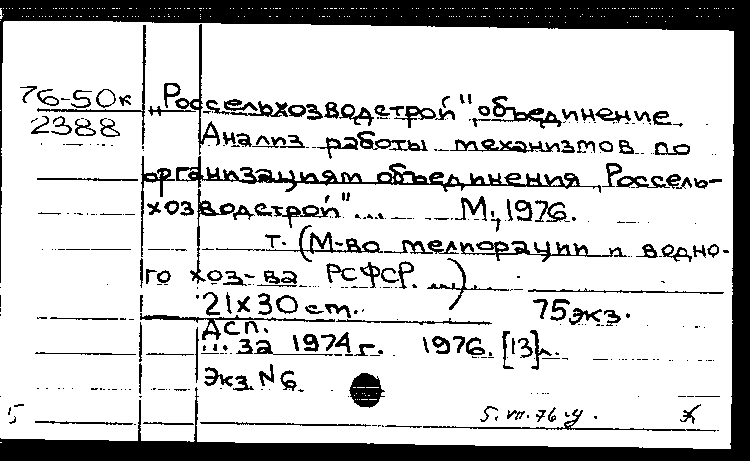 76-50к „Россельхозводстрой", объединение.
2388 Анализ работы механизмов по
организациям объединения „Россель-
хозводстрой"... М., 1976.
т. (М-во мелиорации и водно-
го хоз-ва РСФСР. ...).
21х30 см. 75 экз.
ДСП.
... за 1974 г. 1976. [13] л.
Экз. N 6
5 5.VII.76